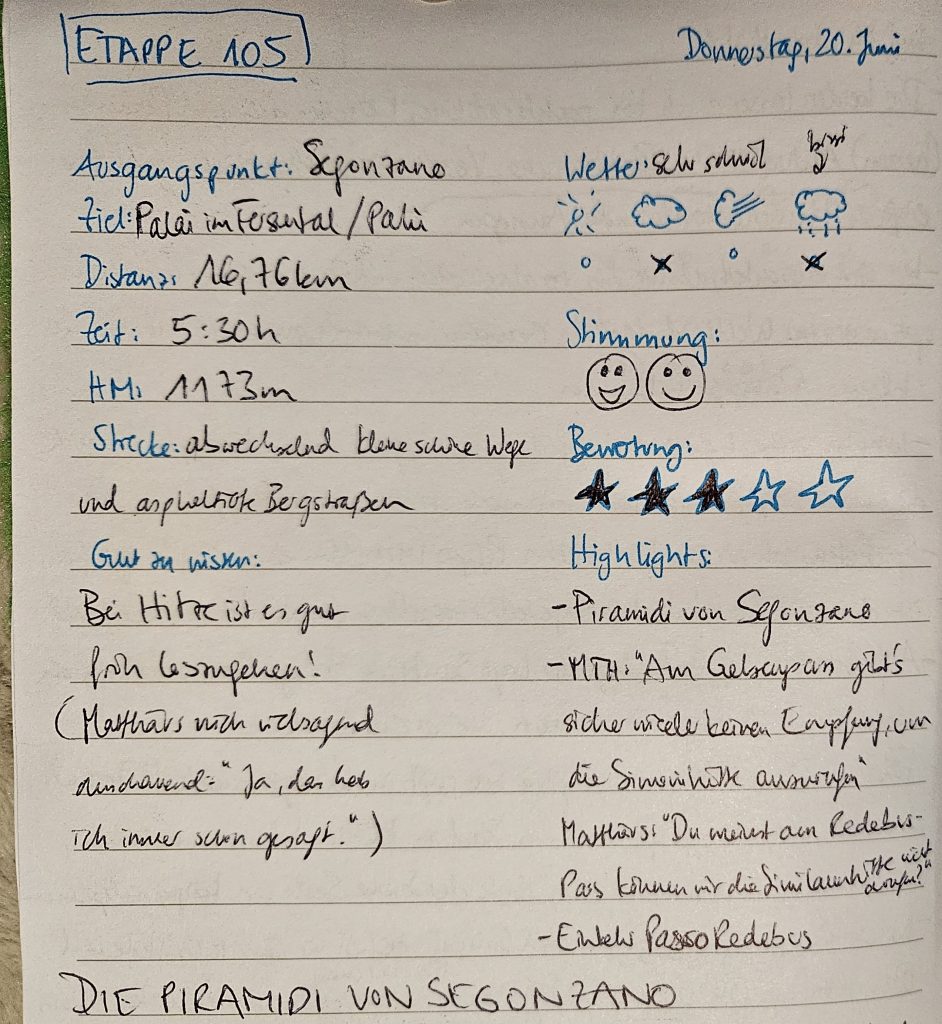 ETAPPE 105
Donnerstag, 20. Juni
Ausgangspunkt: Segonzano
Ziel: Palai im Fersental / Palù
Distanz: 16,76 km
Zeit: 5:30 h
HM: 1173m
Strecke: abwechselnd kleine schöne Wege
und asphaltierte Bergstraßen
Gut zu wissen:
Bei Hitze ist es gut
früh loszugehen!
(Matthäus mich vielsagend
anschauend: "Ja, das hab
ich immer schon gesagt.")
Wetter: sehr schwül
Stimmung:
Bewertung:
Highlights:
- Piramidi von Segonzano
- MTH: "Am pass gibt's
sicher wieder keinen Empfang, um
die hütte anzurufen"
Matthäus: "Du meinst am Redebus-
Pass können wir die Similaunhütte nicht
anrufen?"
- Einkehr Passo Redebus
DIE PIRAMIDI VON SEGONZANO